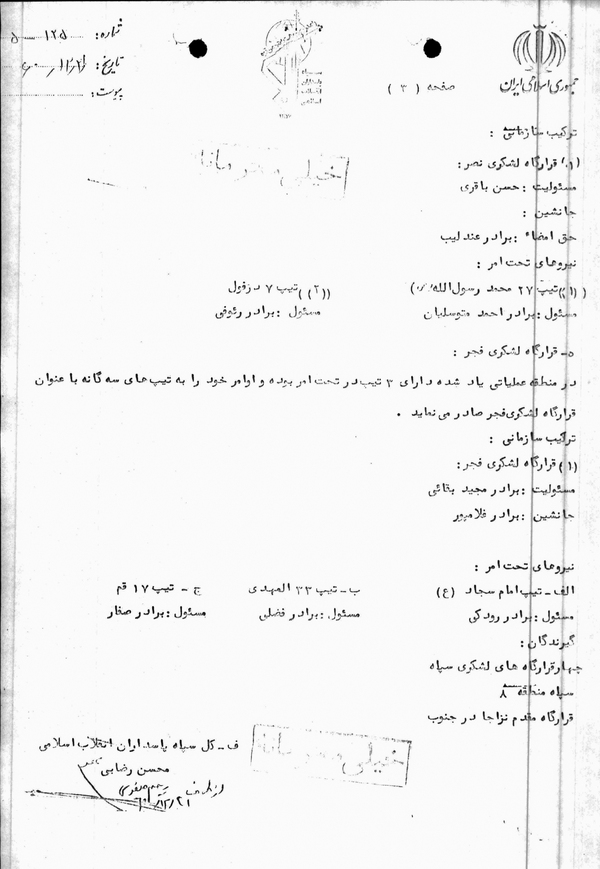 شماره: ۱۲۵ ـ ۵
تاریخ:
پیوست:
جمهوری اسلامی ایران
صفحه ( ۳ )
ترکیب سازمانی :
(۱) قرارگاه لشکری نصر :
مسئولیت : حسن باقری
جانشین :
حق امضاء : برادر عندلیب
نیروهای تحت امر :
((۱)) تیپ ۲۷ محمد رسول‌الله(ص) ((۲)) تیپ ۷ دزفول
مسئول : برادر احمد متوسلیان مسئول : برادر رئوفی
خیلی محرمانه
۵- قرارگاه لشکری فجر :
در منطقه عملیاتی یاد شده دارای ۳ تیپ در تحت امر بوده و اوامر خود را به تیپ‌های سه گانه با عنوان
قرارگاه لشکری فجر صادر می نماید .
ترکیب سازمانی :
(۱) قرارگاه لشکری فجر :
مسئولیت : برادر مجید بقائی
جانشین : برادر غلامپور
نیروهای تحت امر :
الف - تیپ امام سجاد (ع) ب - تیپ ۳۳ المهدی ج - تیپ ۱۷ قم
مسئول : برادر رودکی مسئول : برادر فضلی مسئول : برادر صفار
گیرندگان :
چهار قرارگاه های لشکری سپاه
سپاه منطقه ۸
قرارگاه مقدم نزاجا در جنوب
خیلی محرمانه
ف - کل سپاه پاسداران انقلاب اسلامی
محسن رضایی
از طرف رحیم صفوی